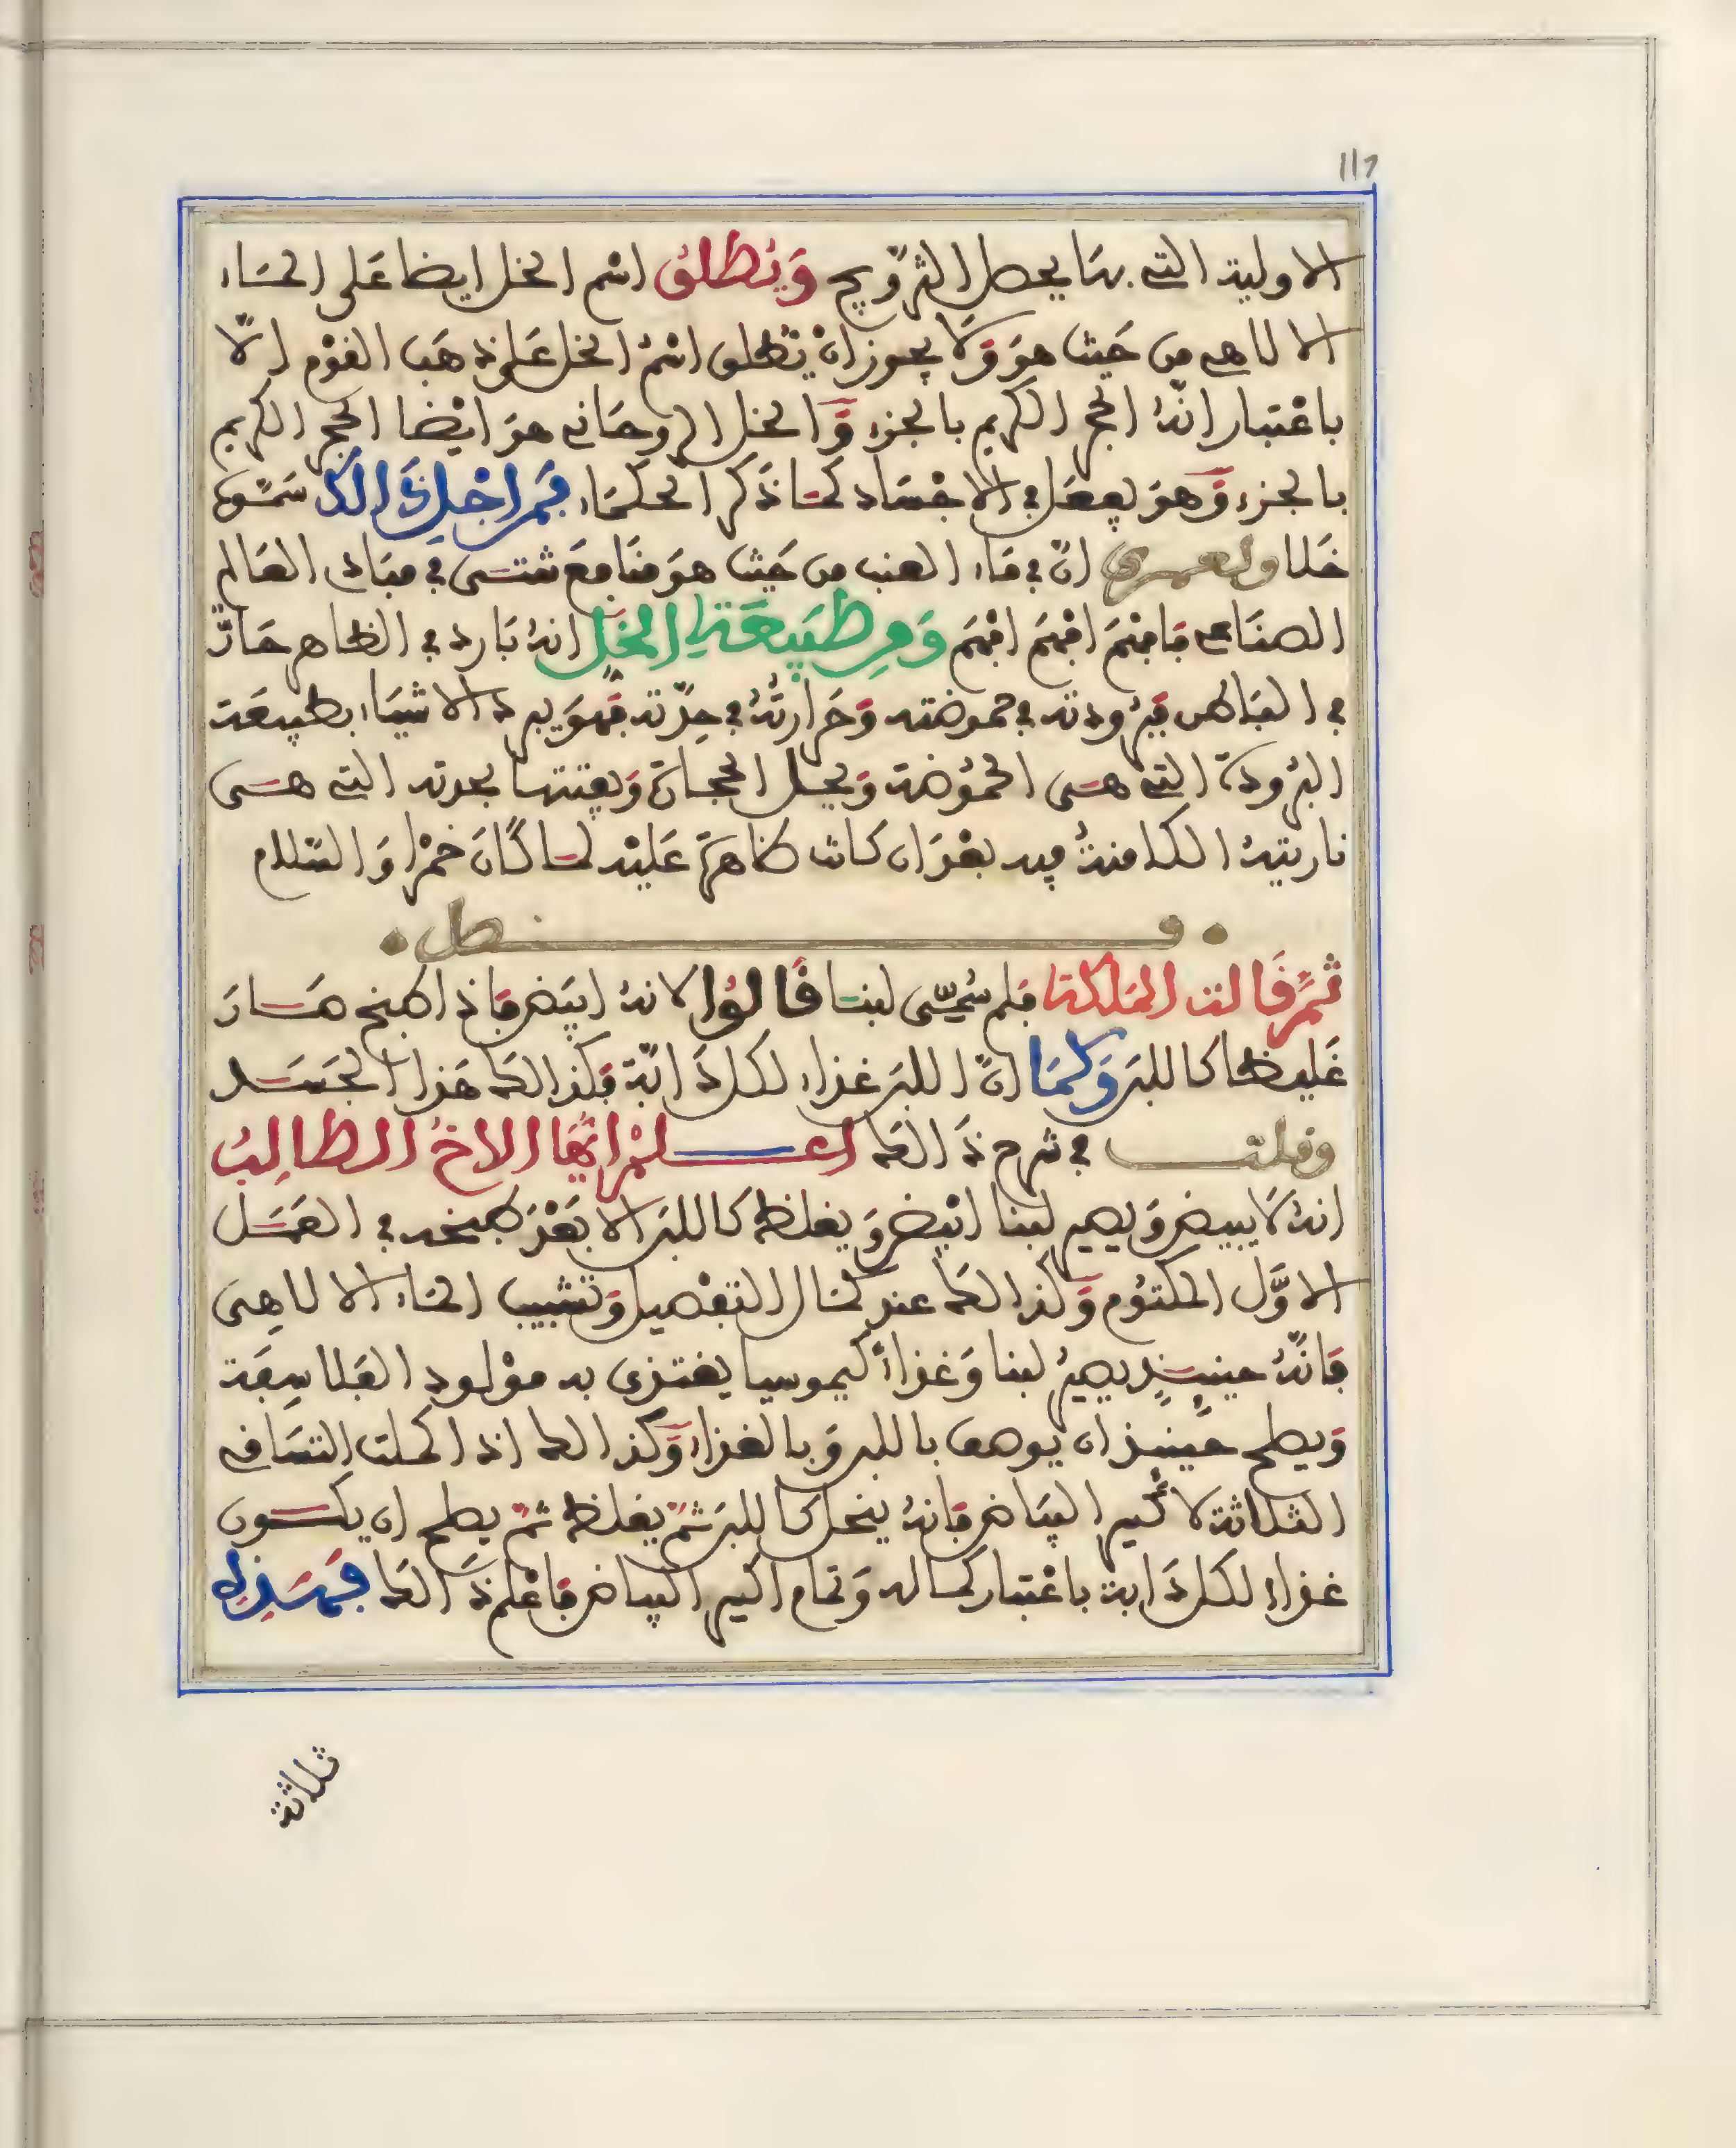 117
الاولية التي بها يحصل التزويج وَيُطلق اسْم الخل ايضا عَلى المَاء
الالاهي من حَيث هوَ وَلا يجوز انْ يُطلق اسْمُ الخل عَلى ذهَب القوْم إلّا
باعْتبار انّهُ الحجر الكريم بالجزء وَالخل الروحَاني هوَ ايْضا الحجر الكريم
بالجزء وَهوَ يفعَل في الاجْسَاد كمَا ذكر الحكمَاء فمن اجْلِ ذَالك سَمّوه
خَلا ولعمري انّ في مَاء العنب من حَيث هوَ منَافعَ شتى في مبَادى العَالم
الصنَاعي فافهَم افهَم افهَم وَمن طَبيعَة الخَل انهُ بَارد في الظاهر حَارّ
في البَاطن فبرُودته في حموضته وَحَرارتُهُ في حِدّته فهوَ يبرد الاشيَاء بطبيعَة
البُرودة التي هي الحمُوضة وَيحل الحجَارة وَيفتتها بحدته التي هي
ناريتهُ الكامنةُ فيه بعْدَ ان كانت ظاهرَة عَليْه لمَا كَانَ خمْرا وَالسّلام
فصل
ثمّ قَالت المَلكة فلم سُمّي لبنا قَالوُا لانهُ ابيَض فاذا طبخ صَارَ
غَليظا كاللبَن وَكمَا انّ اللبَن غذاء لكل دَابّة فكذالك هَذا الجَسَد
وقلت في شرح ذَالك اعلمْ ايُّها الاخُ الطالِبُ
انهُ لاَ يبيض وَيصير لبنا ابْيض وَيغلظ كاللبَن الا بَعْدَ طبخه في العَمَل
الاوَّل المكتوُم وَكذالك عند كمَال التفْصيل وَتشبيب المَاء الالاهِي
فانّهُ حينئذٍ يصيرُ لبنا وَغذاءً كيموسيا يغتذى به موْلود الفلاسِفَة
وَيصلح حينئذ ان يوصف باللبن وَبالغذاء وَكذالك اذا كملت التسَاقي
الثلاثة لاكسير البيَاض فانهُ ينحل كاللبَن ثمّ يغلظ ثمّ يصلح ان يكون
غذاء لكل دَابة باعْتبار كمَاله وَتمام اكسير البياض فاعْلم ذَالك فهَذِه
ثلاثة